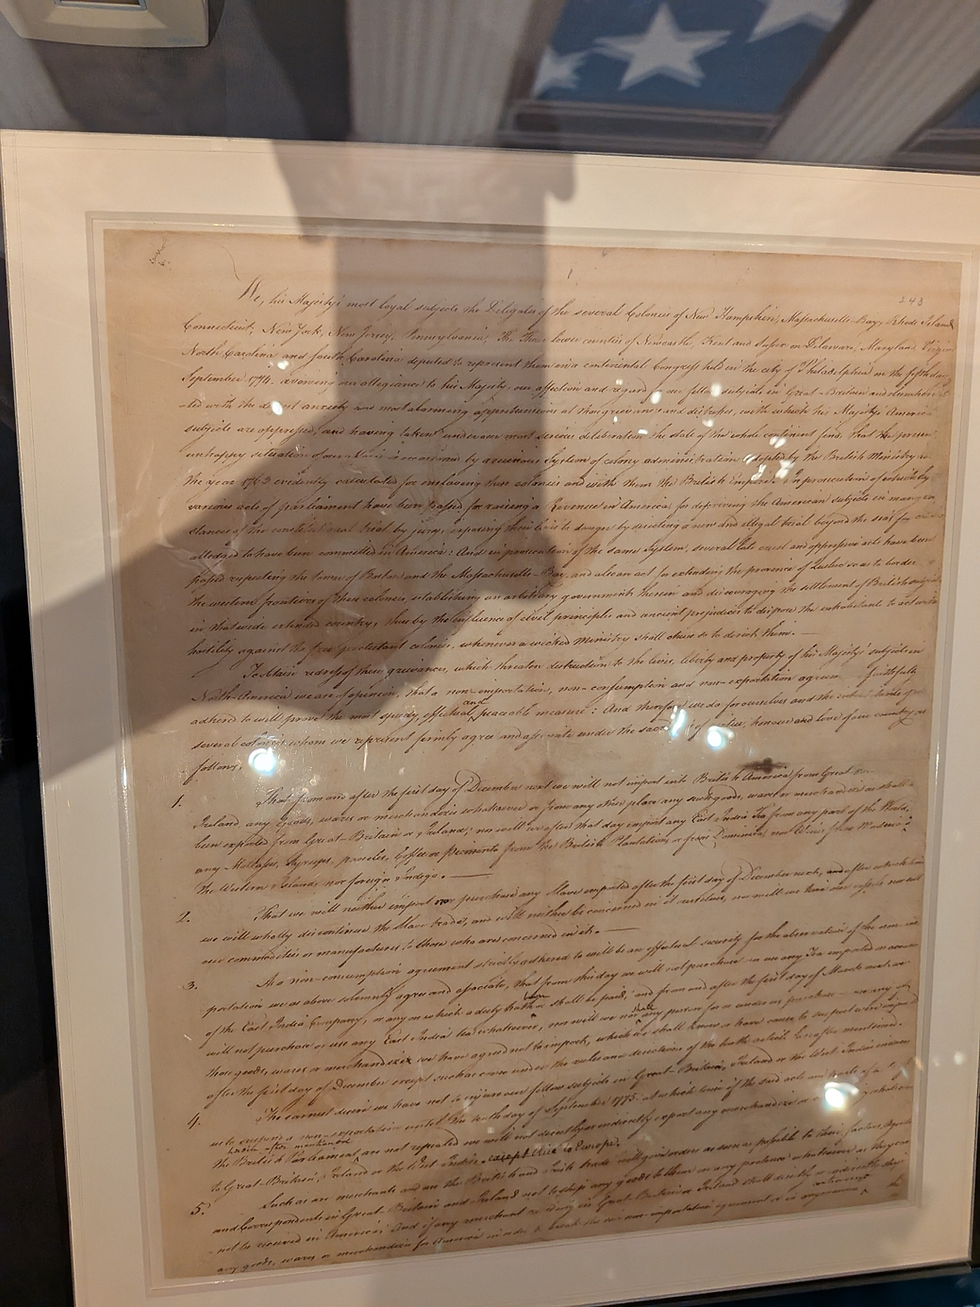 243
We, his Majesty's most loyal subjects the Delegates of the several Colonies of New Hampshire, Massachusetts-Bay, Rhode Island
Connecticut, New York, New Jersey, Pennsylvania, The Three lower counties of Newcastle, Kent and Sussex on Delaware, Maryland, Virgin
North Carolina and South Carolina deputed to represent them in a continental Congress held in the city of Philadelphia on the fifth day
September 1774. avowing our allegiance to his Majesty, our affection and regard for our fellow subjects in Great-Britain and elsewhere
-ted with the deepest anxiety and most alarming apprehensions at those grievances and distresses, with which his Majesty's American
subjects are oppressed, and having taken under our most serious deliberation the state of the whole continent find, that the present
unhappy situation of our affairs is occasioned by a ruinous system of colony administration adopted by the British Ministry
the year 1763 evidently calculated for enslaving these colonies and with them the British Empire. In prosecution of which
various acts of parliament have been passed for raising a Revenue in America, for depriving the American subjects in many
-stances of the constitutional trial by jury, exposing their lives to danger by directing a new and illegal trial beyond the seas for
alledged to have been committed in America: And in prosecution of the same System, several late cruel and oppressive acts have been
passed respecting the town of Boston and the Massachusetts-Bay, and also an act for extending the province of Quebec so as to border
the western frontiers of these colonies, establishing an arbitrary government therein and discouraging the settlement of British
in that wide extended country; thus by the influence of civil principles and ancient prejudices to dispose the inhabitants to act with
hostility against the free protestant colonies, whenever a wicked Ministry shall chuse so to direct them.
To obtain redress of these grievances, which threaten destruction to the lives, liberty and property of his Majesty's subjects in
North-America we are of opinion, that a non-importation, non-consumption and non-exportation agreement faithfully
adhered to will prove the most speedy, effectual and peaceable measure: And therefore we do for ourselves and the inhabitants of
several colonies whom we represent firmly agree and associate under the sacred of virtue, honour and love of our country as
follows,
1. That from and after the first day of December next we will not import into British America from Great
Ireland any goods, wares or merchandize whatsoever or from any other place any such goods, wares or merchandizes as shall
been exported from Great-Britain or Ireland; nor will we after that day import any East India Tea from any part of the World,
any Molasses, Syrrups, paneles, Coffee or Piemento from the British Plantations or from Dominica, nor Wines from Madeira
the Western Islands nor foreign Indigo.
2. That we will neither import nor purchase any Slave imported after the first day of December next, after which time
we will wholly discontinue the Slave trade, and will neither be concerned in it ourselves, nor will we hire our vessels nor sell
our commodities or manufactures to those who are concerned in it.
3. As a non-consumption agreement strictly adhered to will be an effectual security for the observation of the non-im
portation we as above solemnly agree and associate, that from this day we will not purchase or use any Tea imported on account
of the East India Company, or any on which a duty hath been or shall be paid; and from and after the first day of March next we
will not purchase or use any East India tea whatsoever, nor will we nor shall any person for or under us purchase or use any of
those goods, wares or merchandizes we have agreed not to import, which we shall know or have cause to suspect were imported
after the first day of December except such as come under the rules and directions of the tenth article hereafter mentioned.
4. The earnest desire we have not to injure our fellow subjects in Great-Britain, Ireland or the West Indies induces
us to suspend a non-exportation until the tenth day of September 1775. at which time if the said acts and parts of acts of
herein after mentioned
the British Parliament are not repealed we will not directly or indirectly export any merchandize or
to Great-Britain, Ireland or the West Indies, except Rice to Europe.
5. Such as are merchants and use the British and Irish trade will give orders as soon as possible to their factors, Agents
and Correspondents in Great-Britain and Ireland not to ship any goods to them on any pretence whatsoever as they can
not be received in America; And if any merchant residing in Great-Britain or Ireland shall directly or indirectly ship
any goods, wares or merchandizes for America in order to break the said non-importation agreement or in any manner